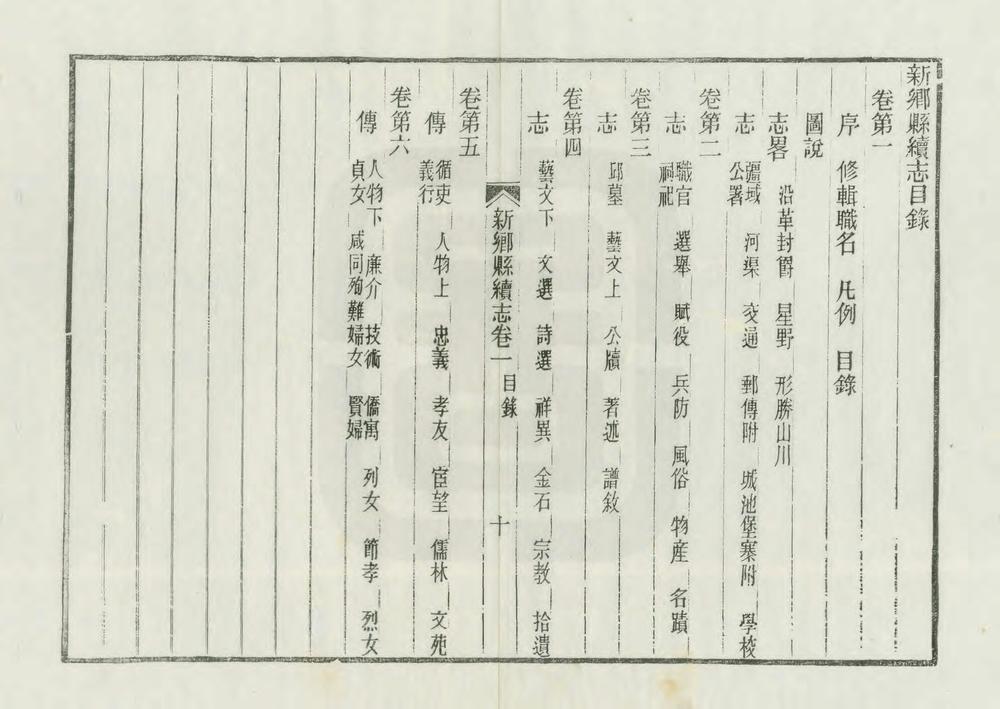 新鄉縣續志目錄
卷第一
序　修輯職名　凡例　目錄
圖說
志畧　沿革封爵　星野　形勝山川
志　疆域　河渠　交通　郵傳附　城池堡寨附　學校
公署
卷第二
志　職官　選舉　賦役　兵防　風俗　物產　名蹟
祠祀
卷第三
志　邱墓　藝文上　公牘　著述　譜敘
卷第四
志　藝文下　文選　詩選　祥異　金石　宗教　拾遺
新鄉縣續志卷一　目錄　十
卷第五
傳　循吏　人物上　忠義　孝友　宦望　儒林　文苑
義行
卷第六
傳　人物下　廉介　技術　僑寓　列女　節孝　烈女
貞女　咸同殉難婦女　賢婦